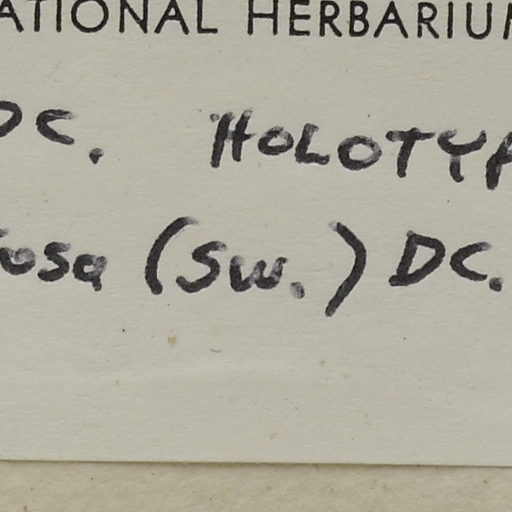 ATIONAL HERBARIUM
DC. HOLOTYP
osa (Sw.) DC.